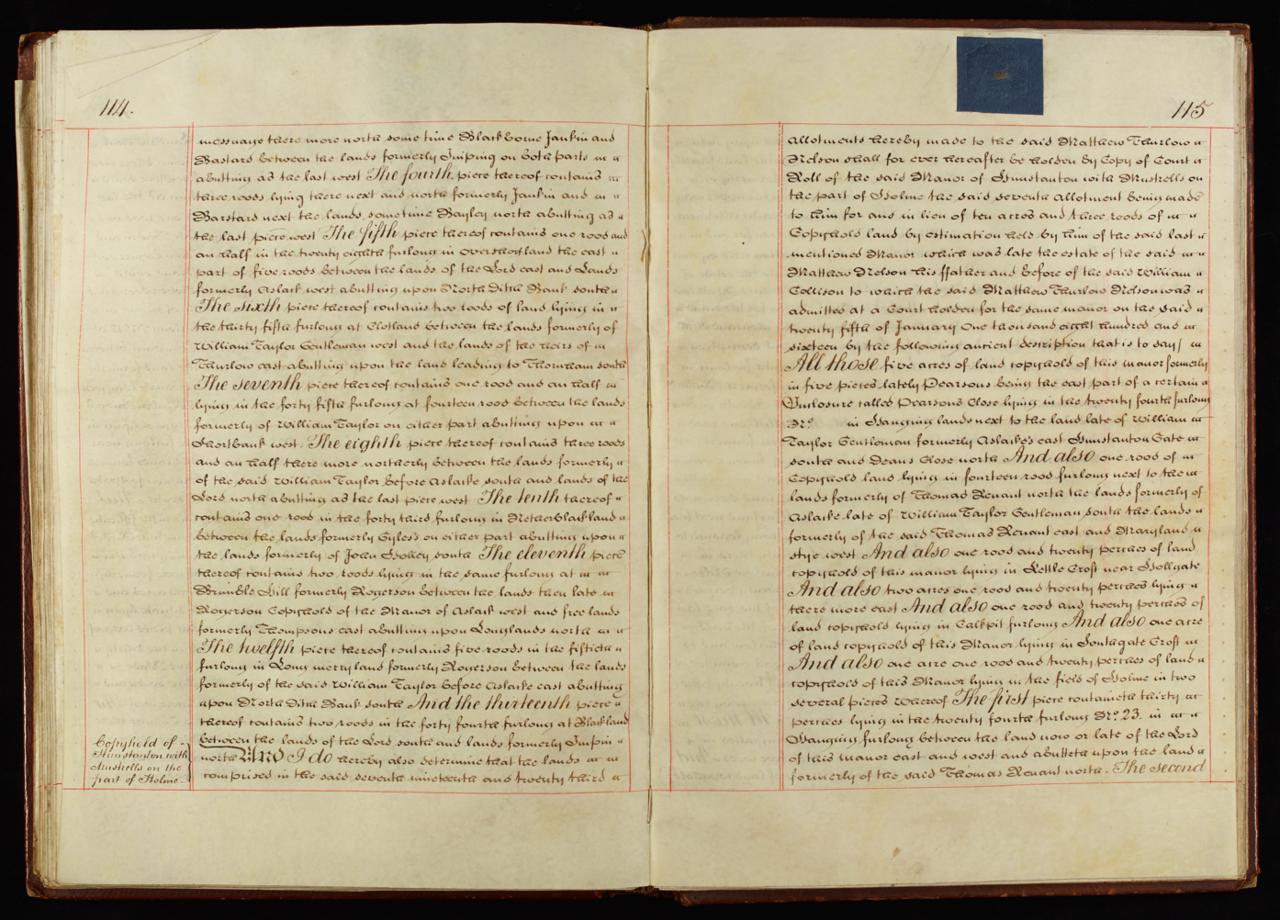 114.
messuage there more north some time Blackborne Jankin and
Bastard between the lands formerly Inping on both parts
abutting as the last west The fourth piece thereof contains
three roods lying there next and north formerly Jankin and
Barstard next the lands sometime Bayley north abutting as
the last piece west The fifth piece thereof contains one rood and
an half in the twenty eighth furlong in Overshortland the east
part of five roods between the lands of the Lord east and Lands
formerly Aslack west abutting upon North Ditch Bank south
The sixth piece thereof contains two roods of land lying in
the thirty fifth furlong at Clotland between the lands formerly of
William Taylor Gentleman west and the lands of the heirs of
Thurlow east abutting upon the land leading to Thornham south
The seventh piece thereof contains one rood and an half
lying in the forty fifth furlong at fourteen rood between the lands
formerly of William Taylor on either part abutting upon
Shortbank west. The eighth piece thereof contains three roods
and an half there more northerly between the lands formerly
of the said William Taylor before Aslacke south and lands of the
Lord north abutting as the last piece west The tenth thereof
contains one rood in the forty third furlong in Netherblackland
between the lands formerly Gyles's on either part abutting upon
the lands formerly of John Polley south The eleventh piece
thereof contains two roods lying in the same furlong at
Brimble Hill formerly Rogerson between the lands then late
Rogerson Copyhold of the Manor of Aslack west and free lands
formerly Thompsons east abutting upon Longlands north
The twelfth piece thereof contains five roods in the fiftieth
furlong in Long merryland formerly Rogerson between the lands
formerly of the said William Taylor before Aslacke east abutting
upon North Ditch Bank south And the thirteenth piece
thereof contains two roods in the forty fourth furlong at Blackland
between the lands of the Lord south and lands formerly Inpin
north And I do hereby also determine that the lands
comprised in the said seventh nineteenth and twenty third
Copyhold of
Hunstanton with
Mustrells on the
part of Holme
115
allotments hereby made to the said Matthew Thurlow
Nelson shall for ever hereafter be holden by Copy of Court
Roll of the said Manor of Hunstanton with Mustrells on
the part of Holme the said seventh allotment being made
to him for and in lieu of ten acres and three roods of
Copyhold land by estimation held by him of the said last
mentioned Manor which was late the estate of the said
Matthew Nelson his ffather and before of the said William
Collison to which the said Matthew Thurlow Nelson was
admitted at a Court holden for the same manor on the said
twenty fifth of January One thousand eight hundred and
sixteen by the following ancient description that is to say/
All those five acres of land copyhold of this manor formerly
in five pieces lately Pearsons being the east part of a certain
Inclosure called Pearsons Close lying in the twenty fourth furlong
No. in Hanging lands next to the land late of William
Taylor Gentleman formerly Aslacke's east Hunstanton Gate
south and Deans Close north And also one rood of
Copyhold land lying in fourteen rood furlong next to the
lands formerly of Thomas Renant north the lands formerly of
Aslacke late of William Taylor Gentleman south the lands
formerly of the said Thomas Renant east and Maryland
stye west And also one rood and twenty perches of land
copyhold of this manor lying in Kettle Croft near Hollgate
And also two acres one rood and twenty perches lying
there more east And also one rood and twenty perches of
land copyhold lying in Calkpit furlong And also one acre
of land copyhold of this Manor lying in Southgate Croft
And also one acre one rood and twenty perches of land
copyhold of this Manor lying in the field of Holme in two
several pieces whereof The first piece containeth thirty
perches lying in the twenty fourth furlong No. 23. in
Hanging furlong between the land now or late of the Lord
of this manor east and west and abutteth upon the land
formerly of the said Thomas Renant north. The second